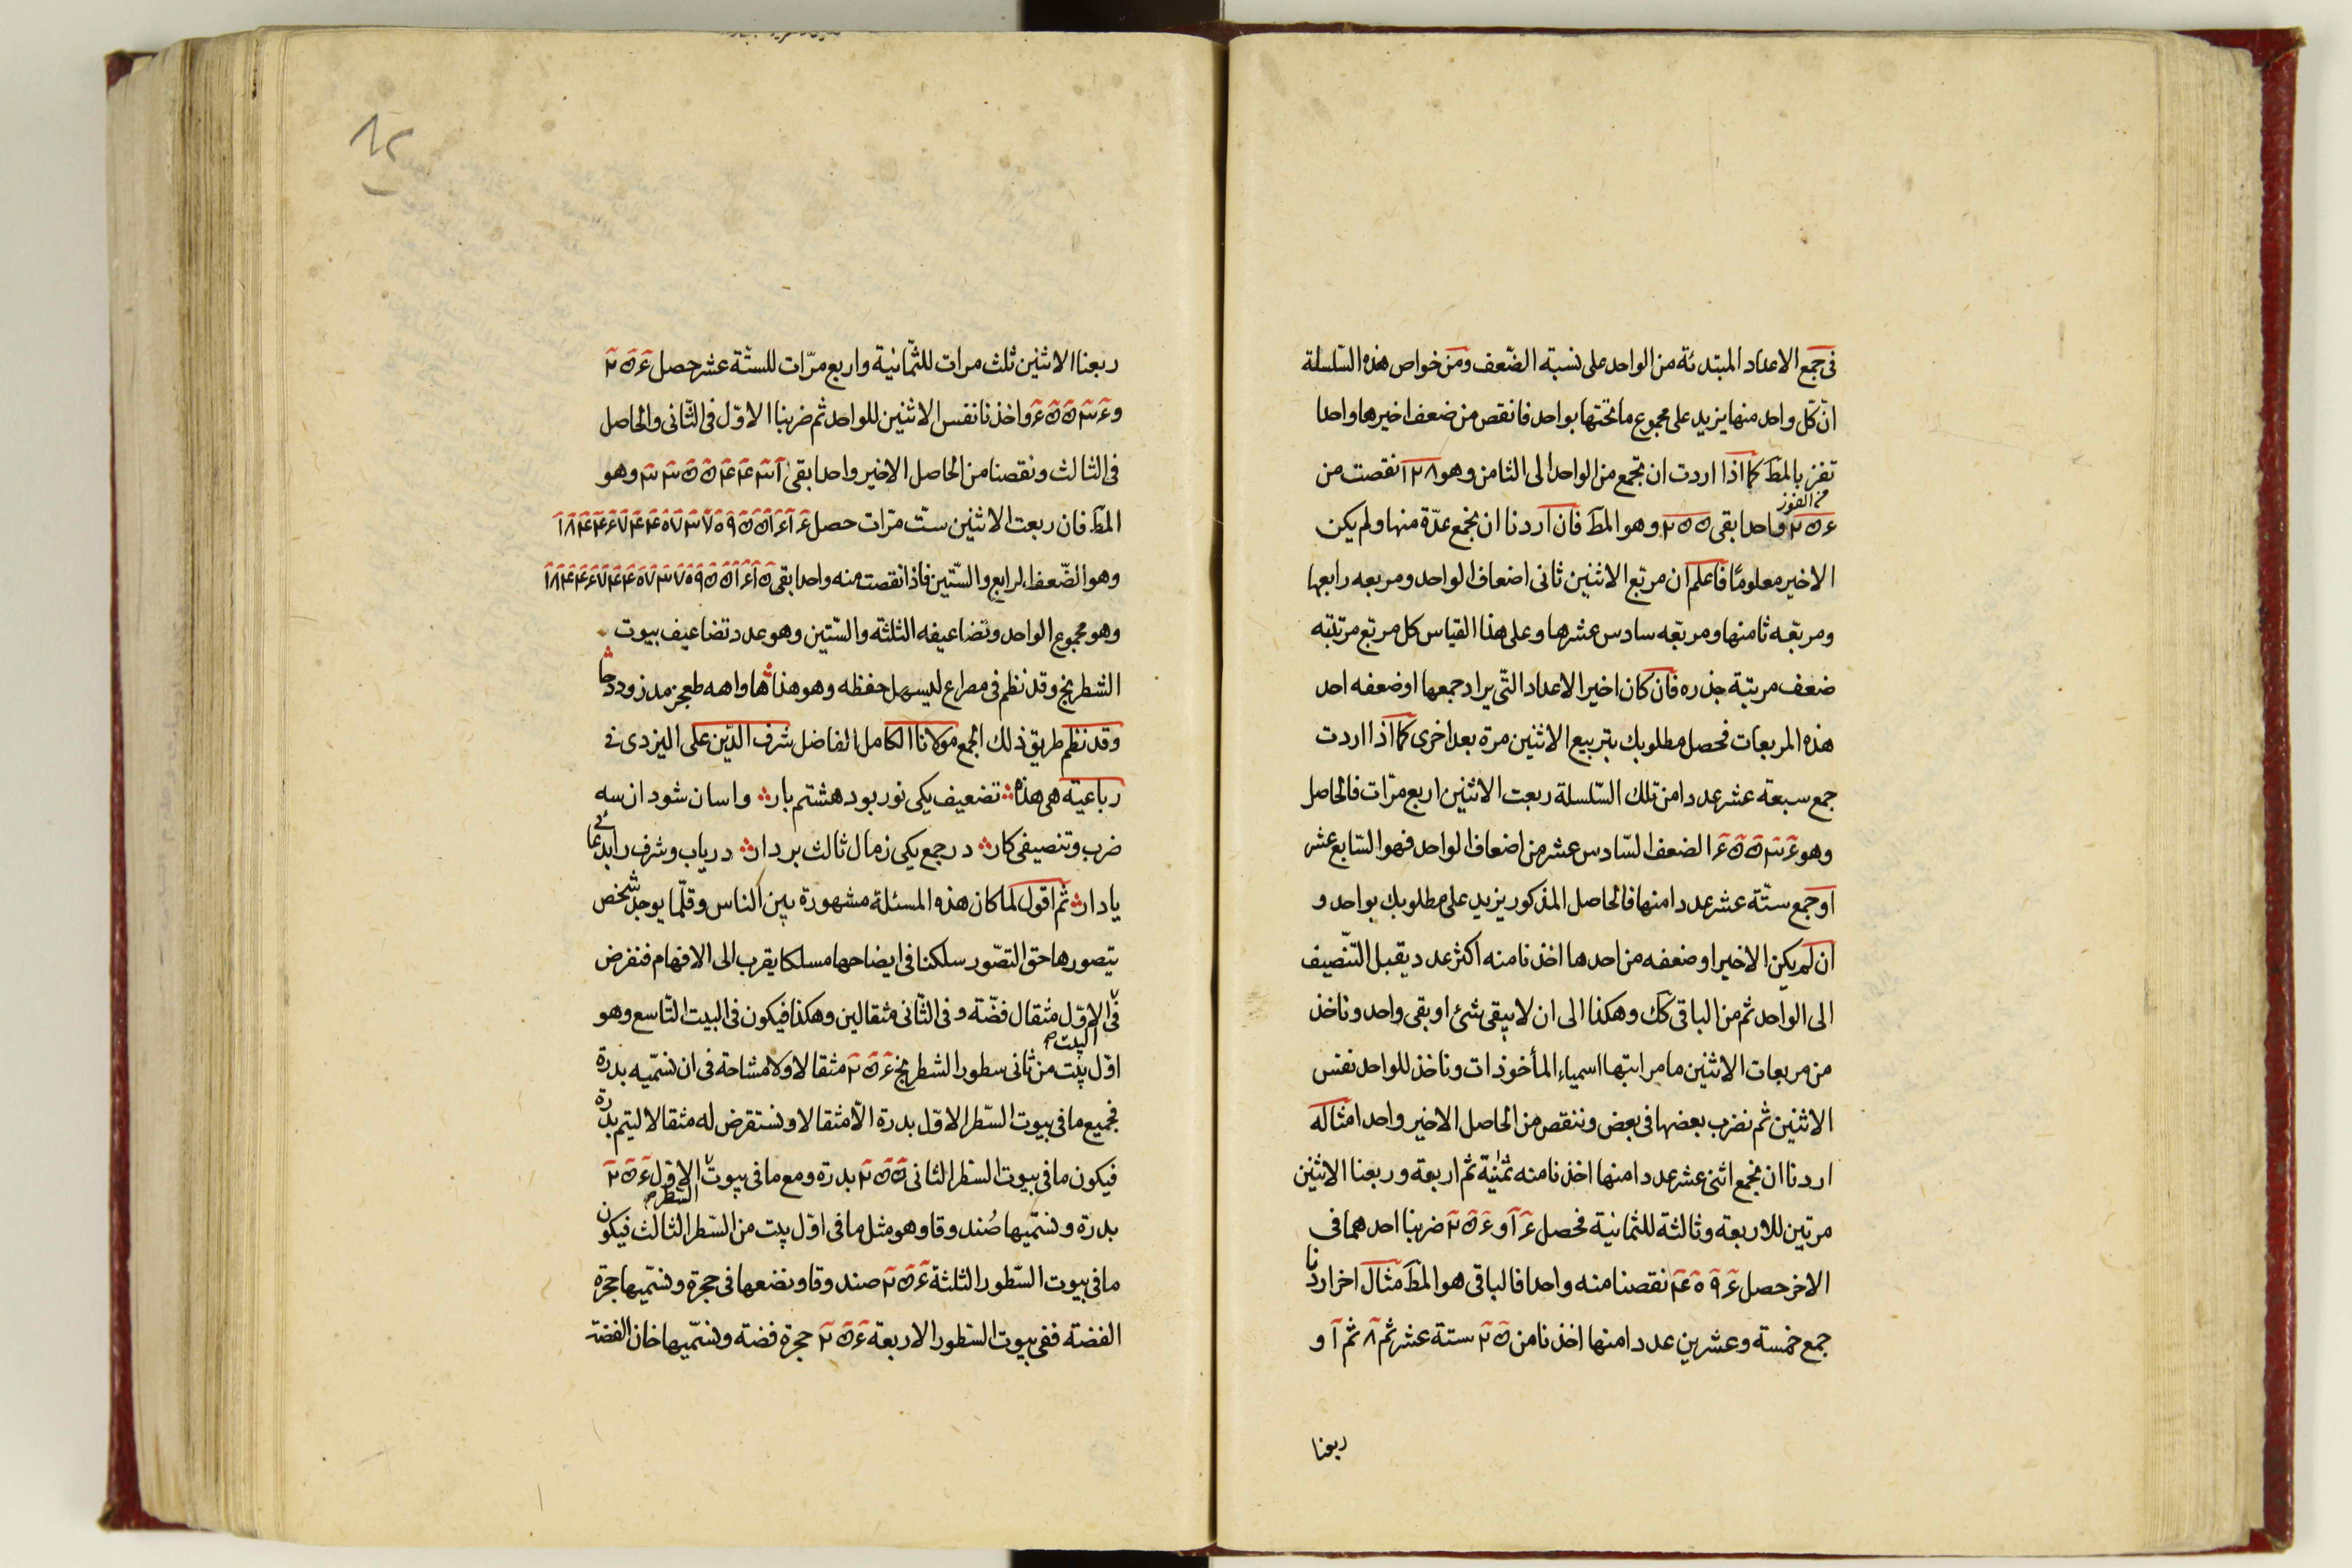 فى جمع الاعداد المبتدئة من الواحد على نسبة الضّعف ومن خواص هذه السّلسلة
انّ كل واحد منها يزيد على مجموع ما تحتها بواحد فانقص من ضعف اخيرها واحدا
تفز بالمط كما اذا اردت ان تجمع من الواحد الى الثامن وهو ۱۲۸ نقصت من
من الفوز
۲۵۶ واحدا بقى ۲۵۵ وهو المط فان اردنا ان نجمع عدّة منها ولم يكن
الاخير معلومًا فاعلم ان مربّع الاثنين ثانى اضعاف الواحد ومربعه رابعها
ومربّعه ثامنها ومربّعه سادس عشرها وعلى هذا القياس كل مربّع مرتبته
ضعف مرتبة جذره فان كان اخير الاعداد التّى يراد جمعها او ضعفه احد
هذه المربعات فحصل مطلوبك بتربيع الاثنين مرة بعد اخرى كما اذا اردت
جمع سبعة عشر عددا من تلك السّلسلة ربعت الاثنين اربع مرّات فالحاصل
وهو ۶۵۵۳۶ الضعف السّادس عشر من اضعاف الواحد فهو السّابع عشر
او جمع ستّة عشر عددا منها فالحاصل المذكور يزيد على مطلوبك بواحد و
ان لم يكن الاخير او ضعفه من احدها اخذنا منه اكثر عدد يقبل التّنصيف
الى الواحد ثم من الباقى كك وهكذا الى ان لا يبقى شئ او بقى واحد وناخذ
من مربعات الاثنين ما مراتبها اسمياء المأخوذات وناخذ للواحد نفس
الاثنين ثم نضرب بعضها فى بعض وننقص من الحاصل الاخير واحدا مثاله
اردنا ان نجمع اثنى عشر عددا منها اخذنا منه ثمنية ثم اربعة وربعنا الاثنين
مرتين للاربعة وثالثة للثمانية فحصل ۱۶ و ۲۵۶ ضربنا احدهما فى
الاخر حصل ۴۰۹۶ نقصنا منه واحدا فالباقى هو المط مثال اخر اردنا
جمع خمسة وعشرين عددا منها اخذنا من ۲۵ ستة عشر ثم ۸ ثم ۱ و
ربعنا
ربعنا الاثنين ثلث مرات للثّمانية واربع مرّات للستّة عشر حصل ۲۵۶
و ۶۵۵۳۶ واخذنا نفس الاثنين للواحد ثم ضربنا الاوّل فى الثّانى والحاصل
فى الثالث ونقصنا من الحاصل الاخير واحدا بقى ۳۳۵۵۴۴۳۱ وهو
المط فان ربعت الاثنين ستّ مرّات حصل ۱۸۴۴۶۷۴۴۰۷۳۷۰۹۵۵۱۶۱۶
وهو الضّعف الرابع والسّتين فاذا نقصت منه واحدا بقى ۱۸۴۴۶۷۴۴۰۷۳۷۰۹۵۵۱۶۱۵
وهو مجموع الواحد وتضاعيفه الثلثة والسّتين وهو عدد تضاعيف بيوت
الشطرنج وقد نظم فى مصراع ليسهل حفظه وهو هذا ها واهه طعجز مدزوددحا
وقد نظم طريق ذلك الجمع مولانا الكامل الفاضل شرف الدّين على اليزدى فى
رباعية هى هذه تضعيف يكى نور بود هشتم بار واسان شود از سه
ضرب وتنصيفى كار در جمع يكى زمال ثالث بردار درياب وشرف را بدعائى
ياد ار ثم اقول لما كان هذه المسئلة مشهورة بين الناس وقلّما يوجد شخص
يتصورها حق التصّور سلكنا فى ايضاحها مسلكا يقرب الى الافهام فنفرض
فى الاوّل مثقال فضّة وفى الثّانى مثقالين وهكذا فيكون فى البيت التّاسع وهو
البيت
اوّل بيت من ثانى سطور الشطرنج ۲۵۶ مثقالا ولا مشاحة فى ان نسمّيه بدرة
فجميع ما فى بيوت السّطر الاوّل بدرة الّا مثقالا ونستقرض له مثقالا ليتم بدرة
فيكون ما فى بيوت السّطر الثانى ۲۵۵ بدرة ومع ما فى بيوت الاوّل ۲۵۶
السّطر
بدرة ونسمّيها صُندوقا وهو مثل ما فى اوّل بيت من السّطر الثالث فيكون
ما فى بيوت السّطور الثلثة ۲۵۶ صندوقا ونضعها فى حجرة ونسمّيها حجرة
الفضته ففى بيوت السّطور الاربعة ۲۵۶ حجرة فضته ونسمّيها خان الفضّة